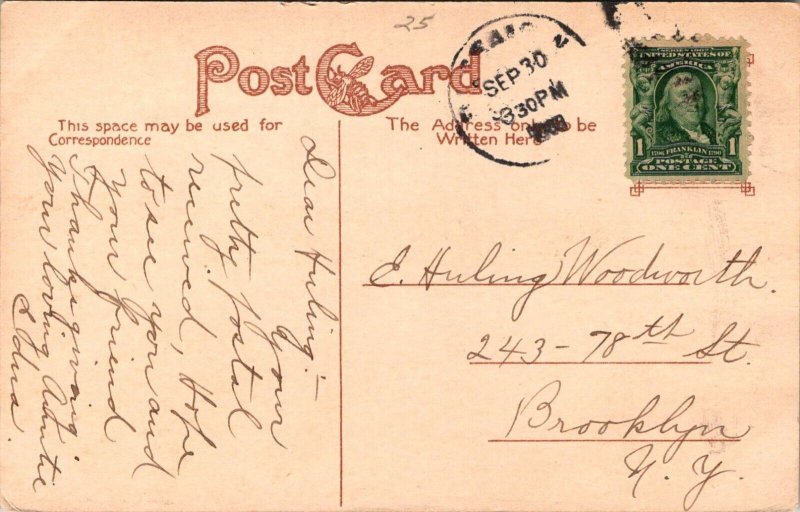 25
Post Card
This space may be used for
Correspondence
The Address only to be
Written Here
SEP 30
830PM
SERIES 1902
UNITED STATES OF
AMERICA
1 1706 FRANKLIN 1790 1
POSTAGE
ONE CENT
Dear Huling:-
Your
pretty postal
received, Hope
to see you and
your friend
Thanksgiving.
Your loving Auntie
Edna.
E. Huling Woodworth.
243 - 78th St.
Brooklyn
N. Y.